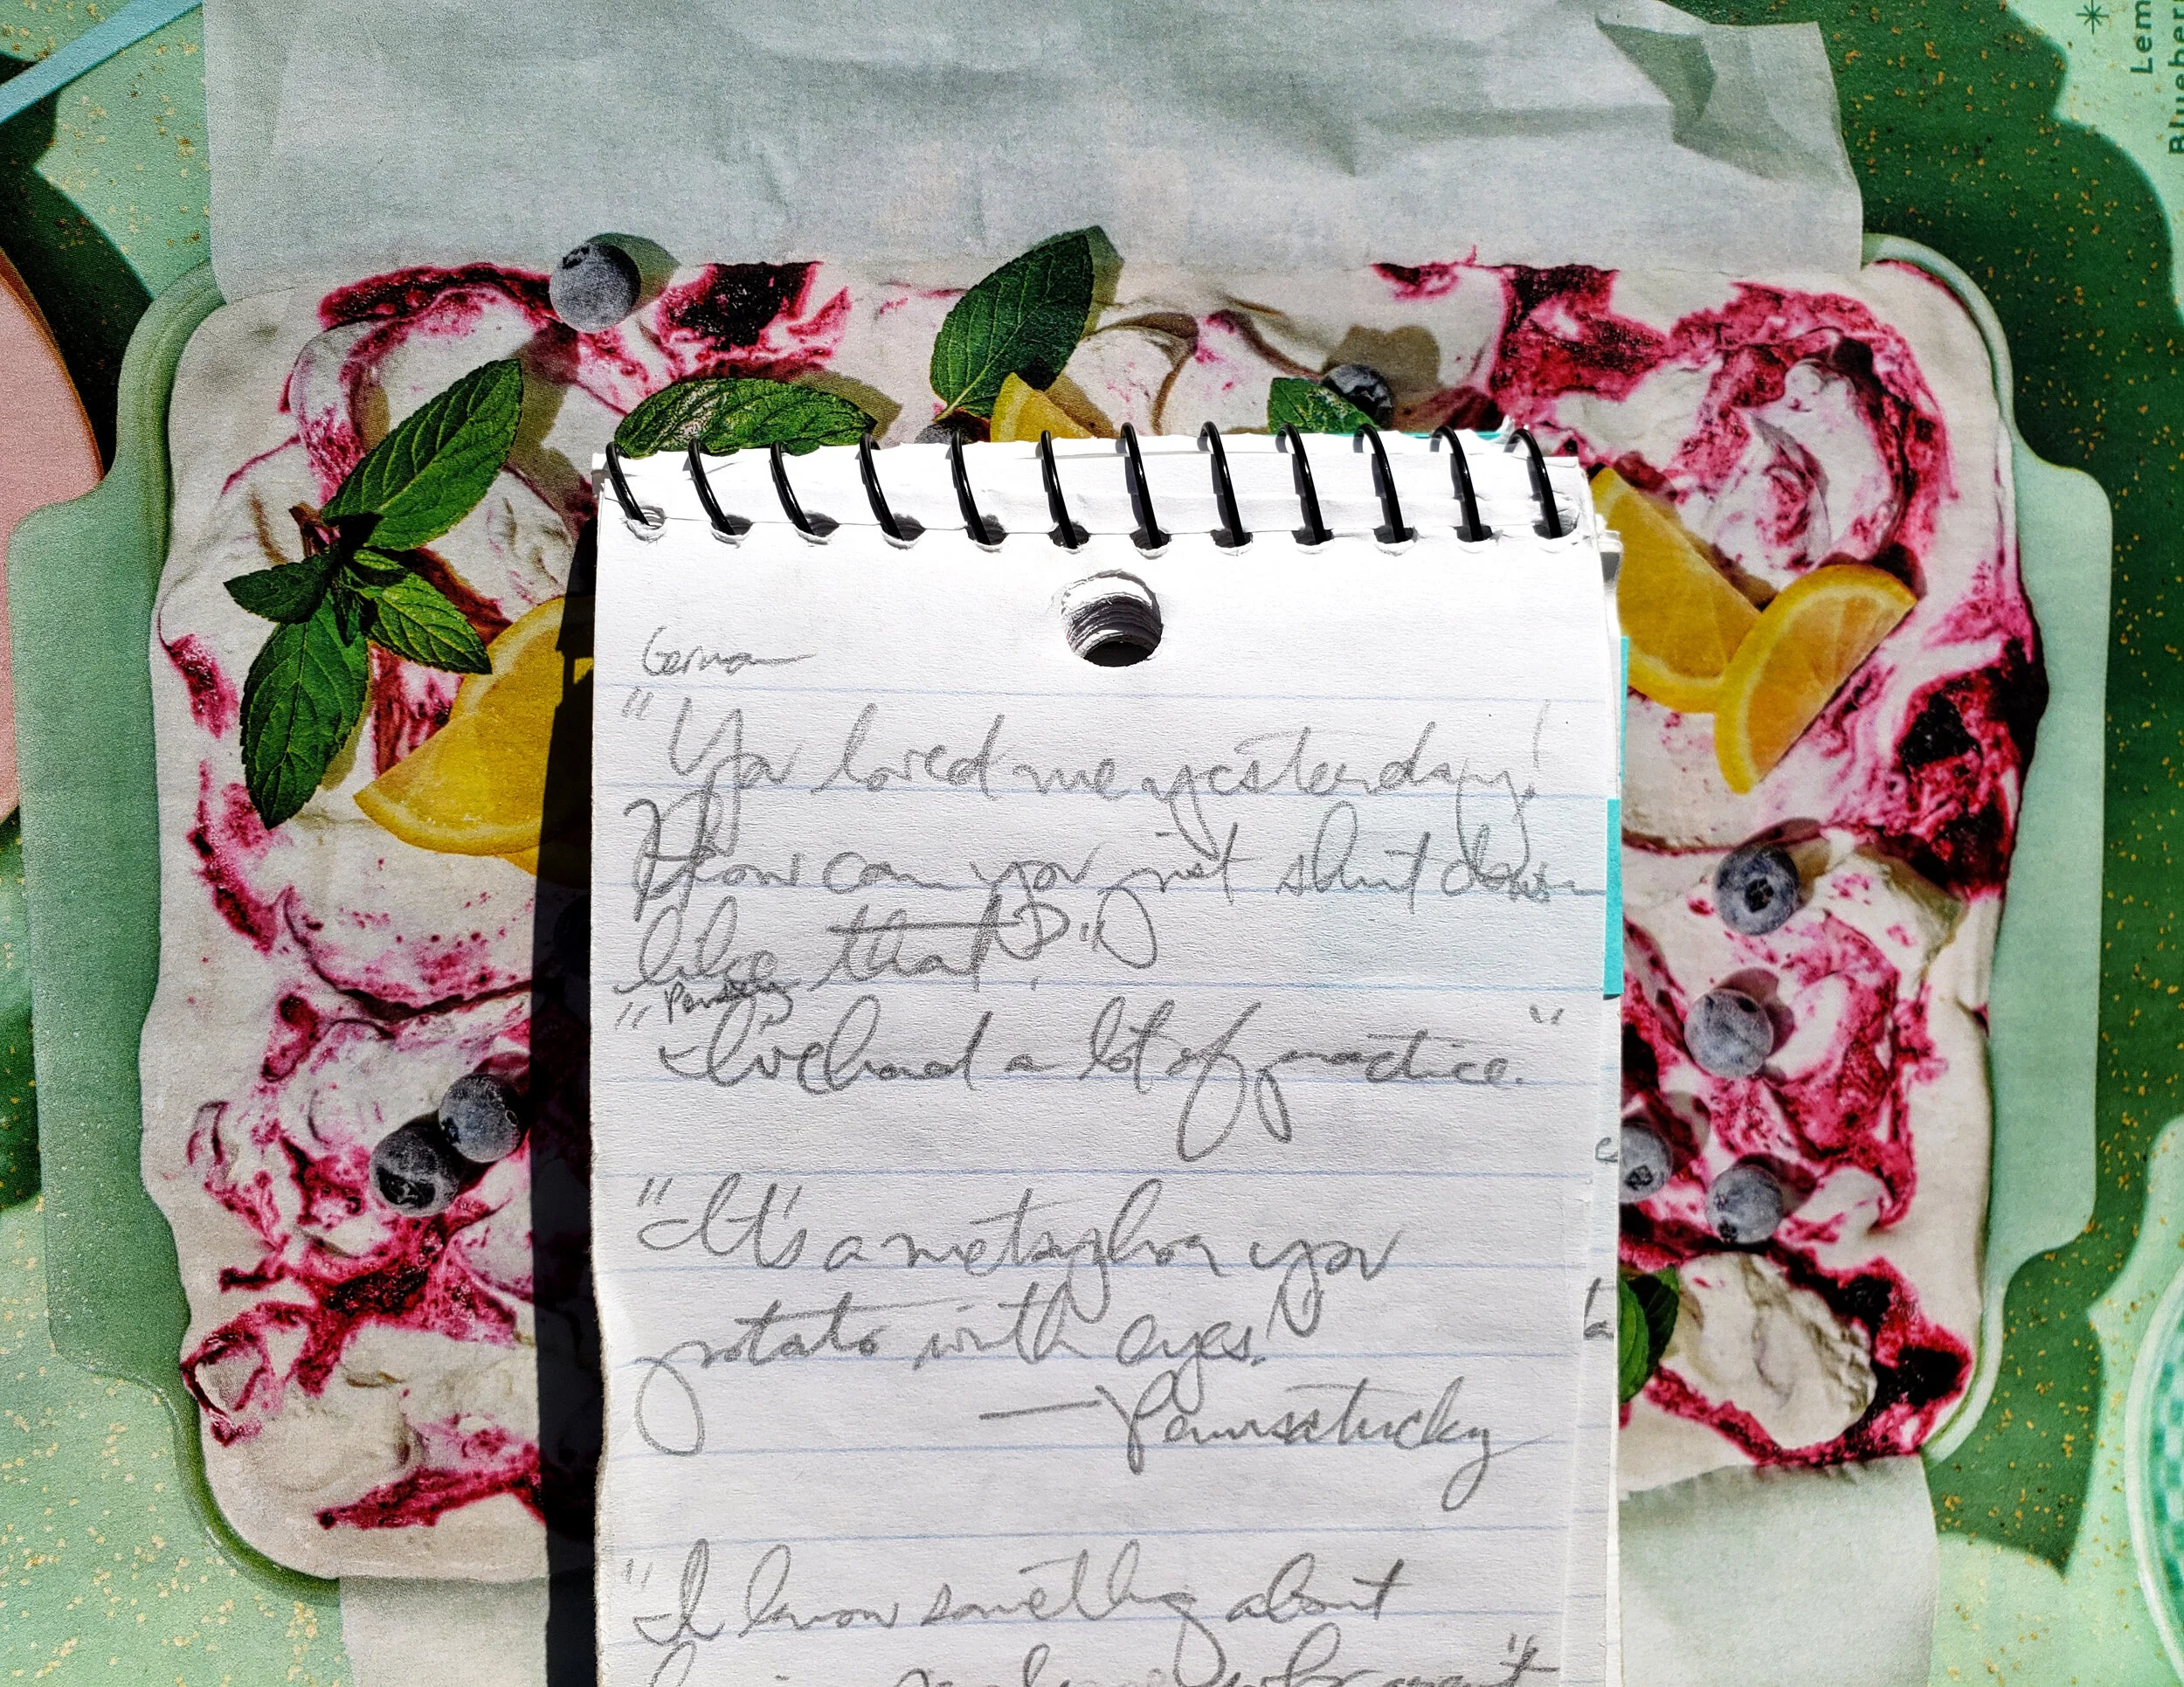 German
"You loved me yesterday!
How can you just shut down
like that?"
"Pensey
I've had a lot of practice."
"It's a metaphor you
potato with eyes!"
— Pennsatucky
"I know something about
Lem
Blueber